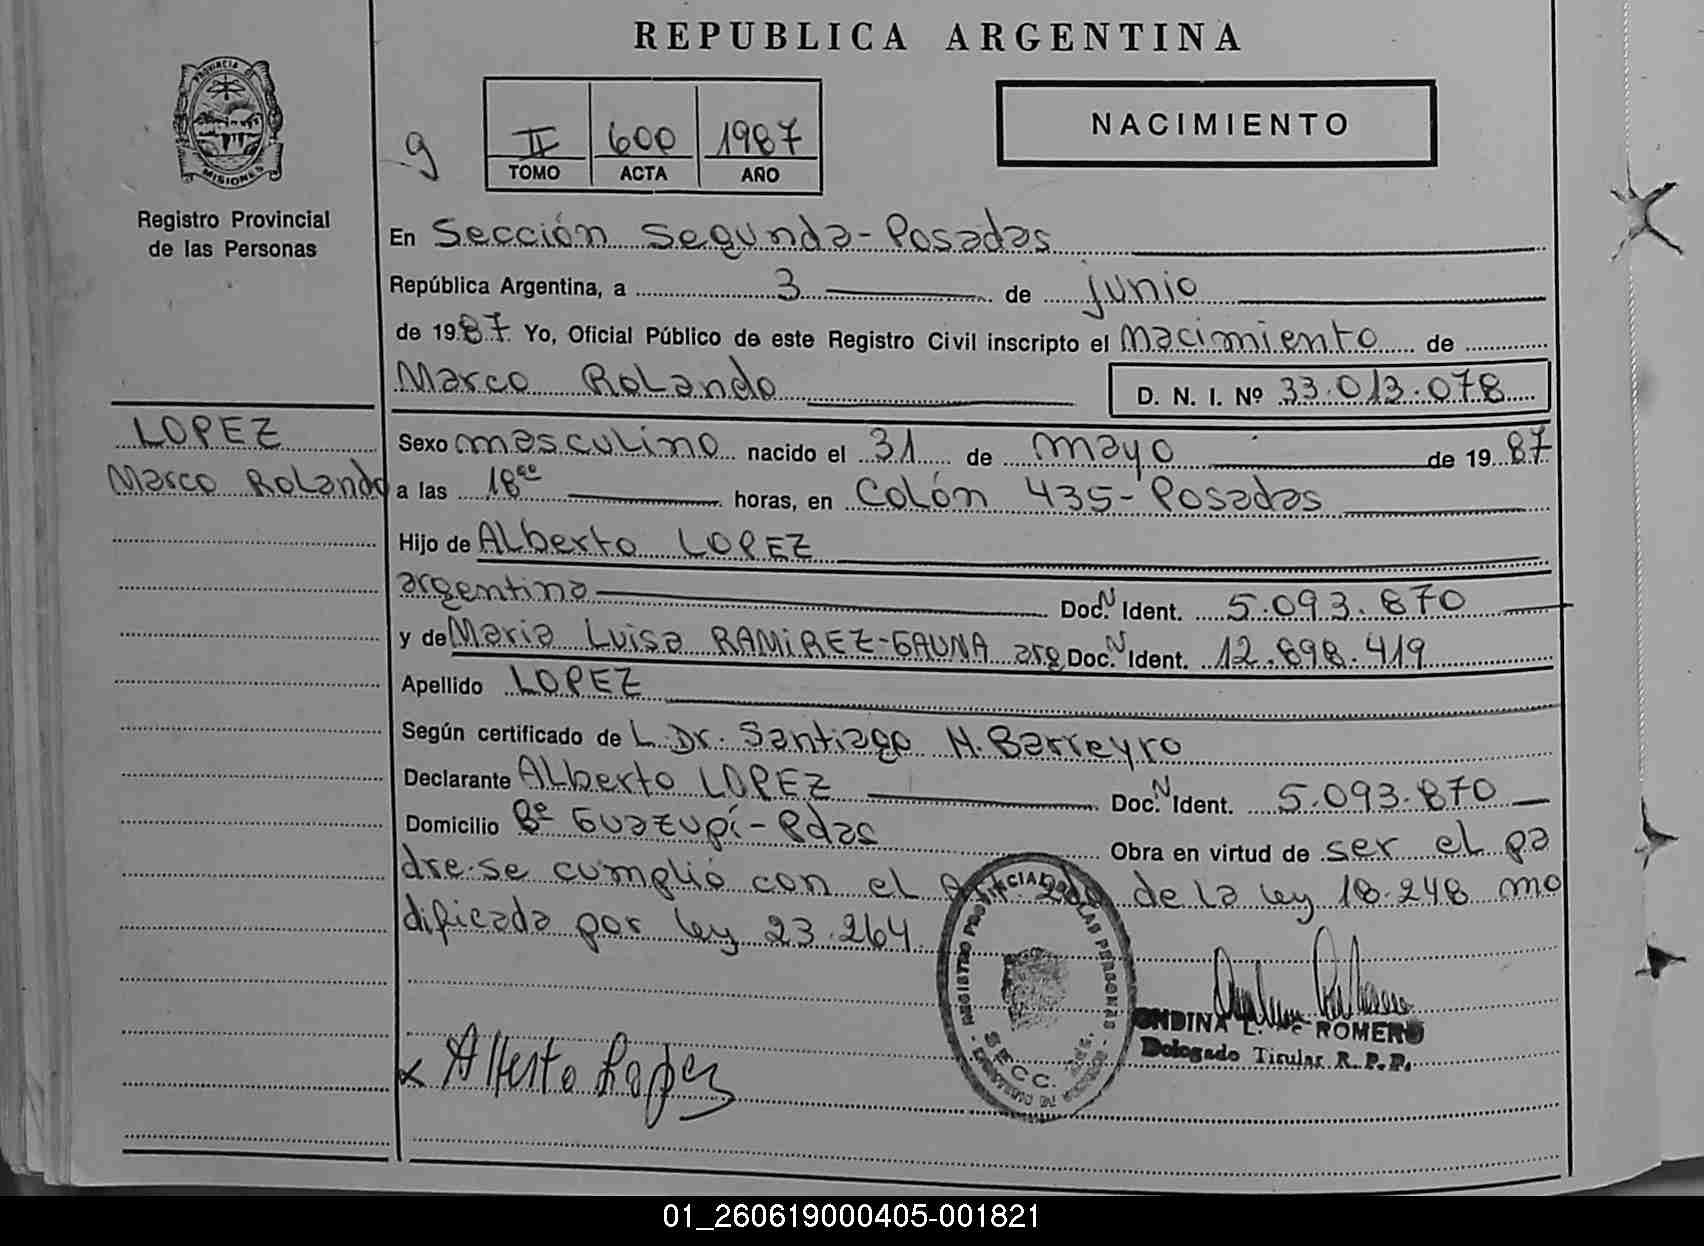 REPUBLICA ARGENTINA
PROVINCIA DE
MISIONES
Registro Provincial
de las Personas
g
II 600 1987
TOMO ACTA AÑO
NACIMIENTO
En Sección Segunda-Posadas
República Argentina, a 3 de junio
de 1987. Yo, Oficial Público de este Registro Civil inscripto el nacimiento de
Marco Rolando D. N. I. Nº 33.013.078
LOPEZ
Marco Rolando
Sexo masculino nacido el 31 de mayo de 1987
a las 18 horas, en Colón 435-Posadas
Hijo de Alberto LOPEZ
argentina Doc. N Ident. 5.093.870
y de Maria Luisa RAMIREZ-GAUNA arg Doc. N Ident. 12.898.419
Apellido LOPEZ
Según certificado de L. Dr. Santiago H. Barreyro
Declarante Alberto LOPEZ Doc. N Ident. 5.093.870
Domicilio Bº Guazupí-Pdas
Obra en virtud de ser el pa
dre-se cumplió con el de la ley 18.248 mo
dificada por ley 23.264
REGISTRO PROVINCIAL DE LAS PERSONAS
SECC.
x Alberto Lopez
ONDINA L. ROMERO
Delegado Titular R. P. P.
01_260619000405-001821